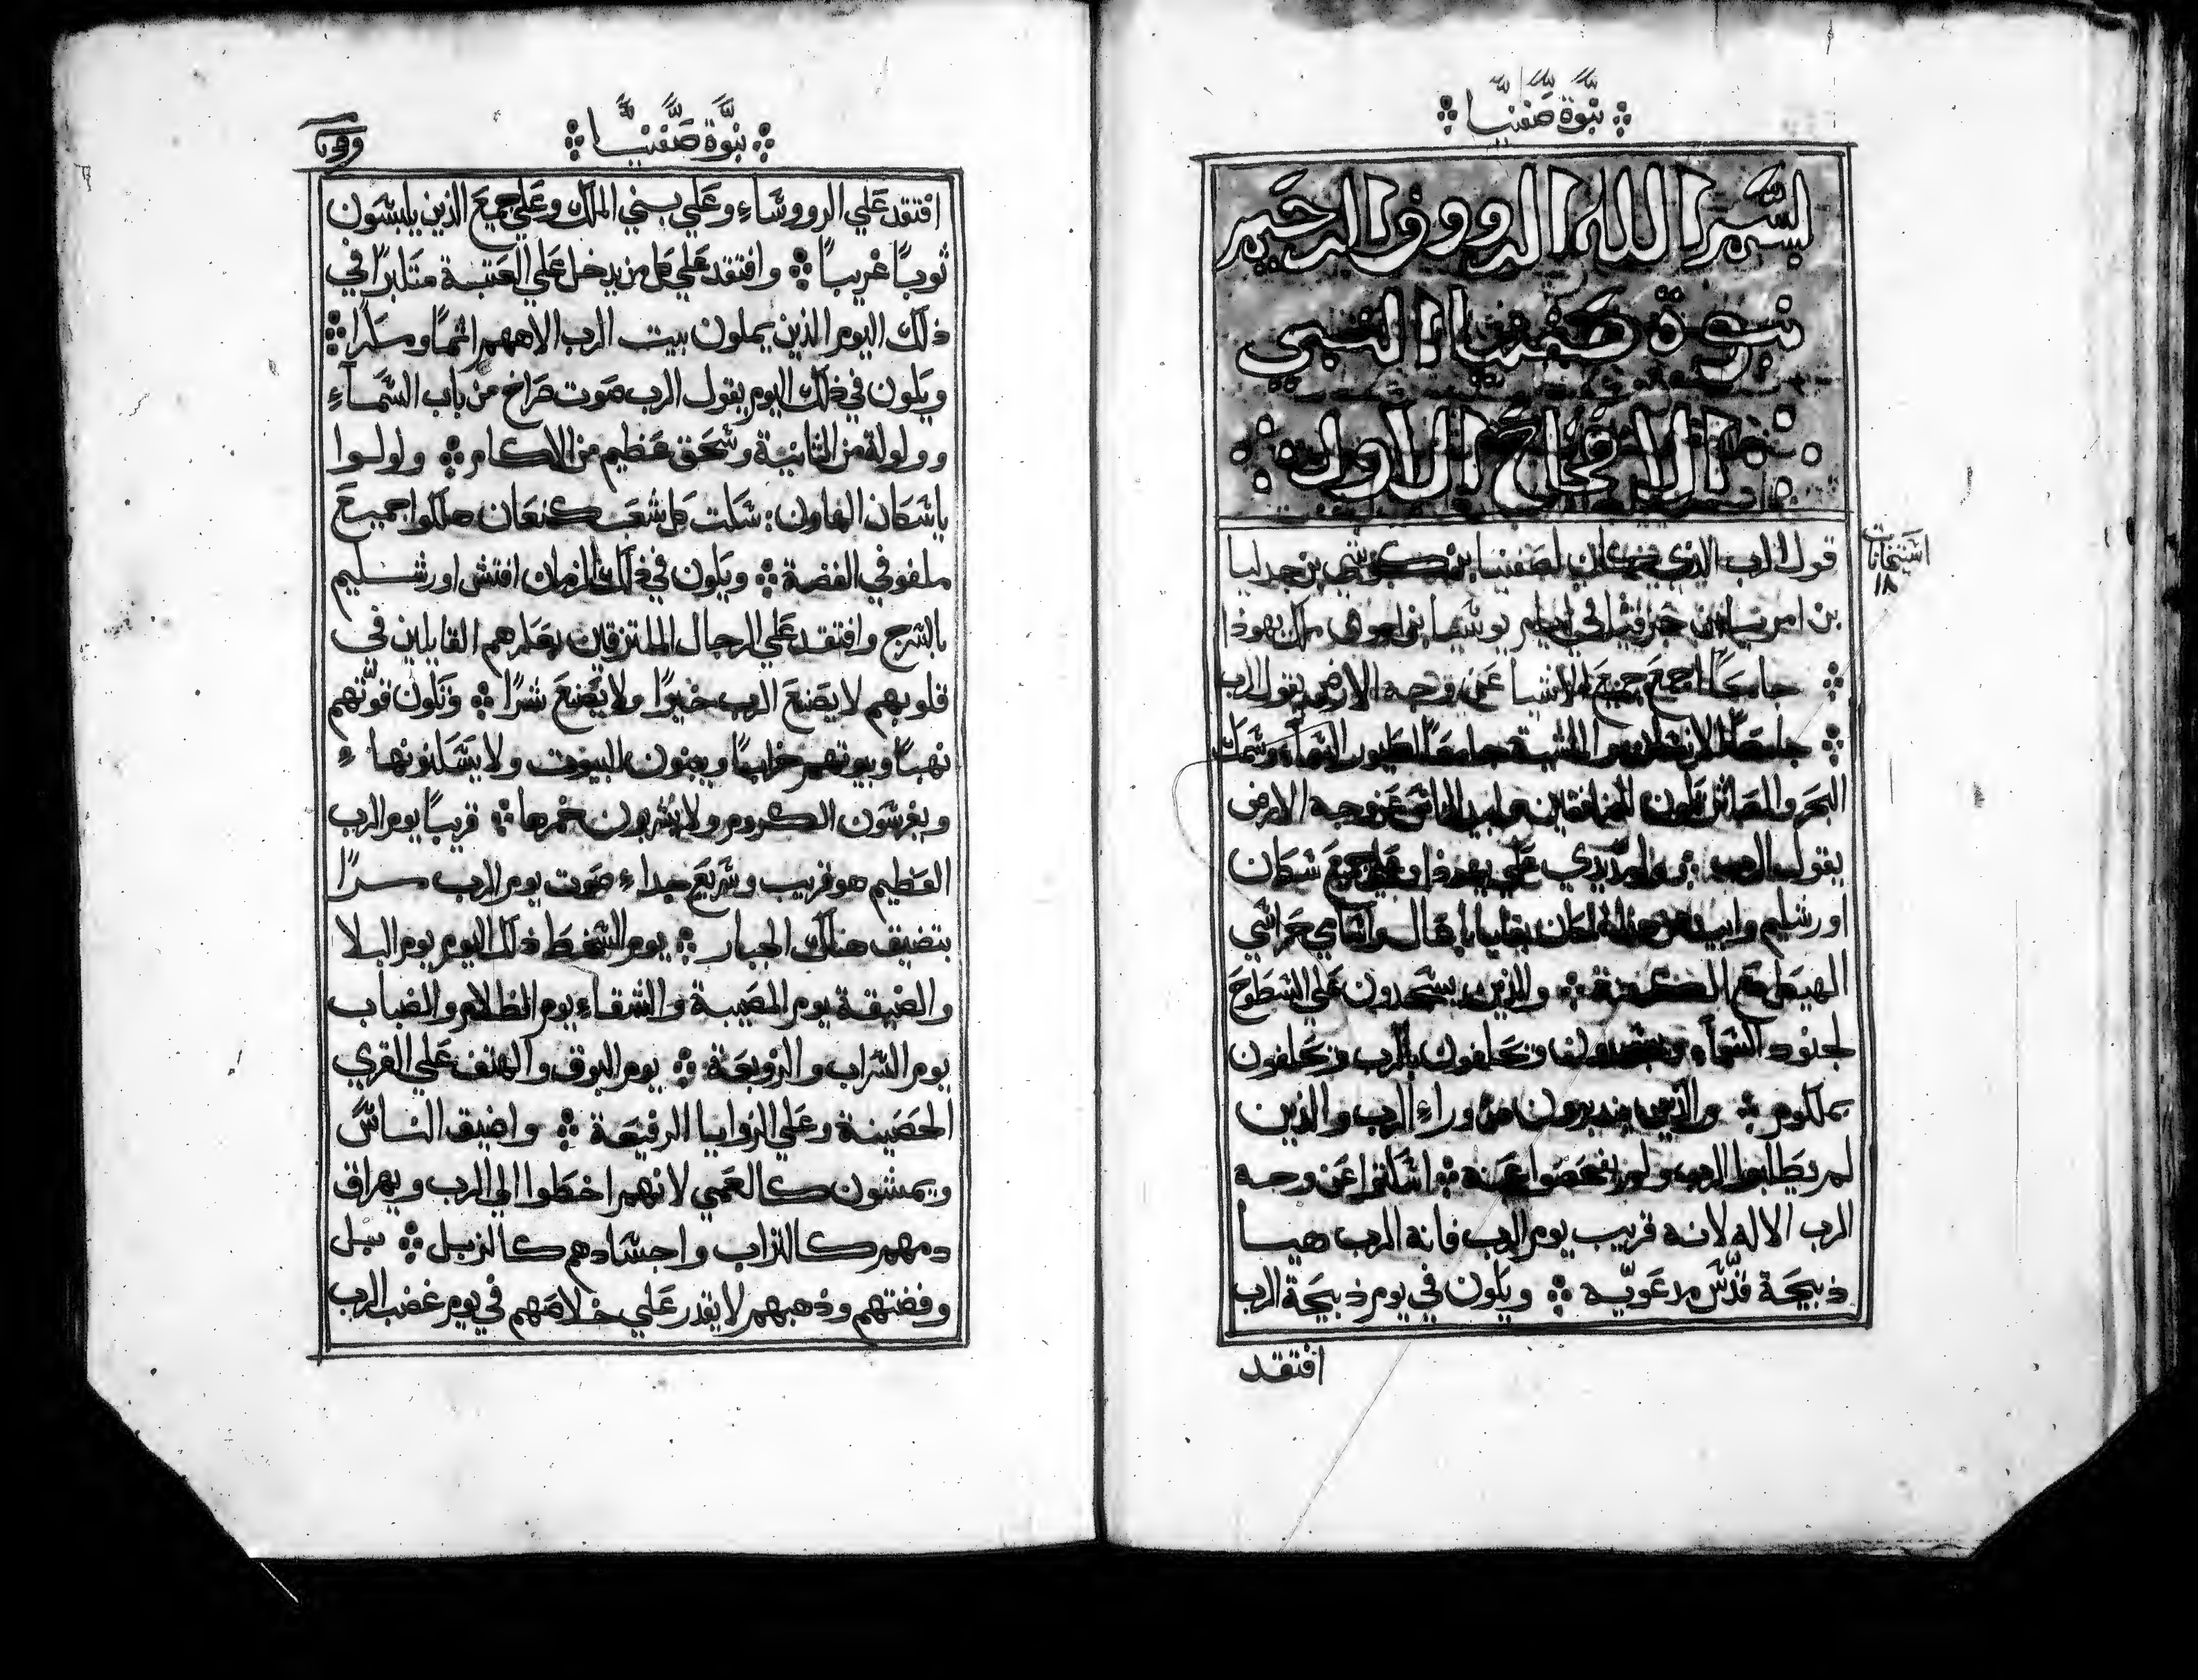 نبوة صفنيا
بسم الله الرووف الرحيم
نبوة صفنيا النبي
الاصحاح الاول
قول الرب الذي كان لصفنيا بن كوشي بن جدليا
بن امريا بن حزقيا في ايام يوشيا بن امون ملك يهوذا
جامعًا اجمع جميع الاشيا عن وجه الارض يقول الرب
جامعًا الانسان و البهيمة جامعًا لطيور السماء وسمك
البحر والمصائب تكون للمنافقين وابيد الناس عن وجه الارض
يقول الرب وامد يدي علي يهوذا وعلي جميع سكان
اورشليم وابيد من هذا المكان بقايا باعال واسامي حراسي
الهيكل مع الكهنة والذين يسجدون علي السطوح
لجنود السماء ويسجدون ويحلفون بالرب ويحلفون
بملكوم والذين يندبرون من وراء الرب والذين
لم يطلبوا الرب ولم يفحصوا عنه اسكتوا عن وجه
الرب الاله لانه قريب يوم الرب فانه الرب هيا
ذبيحة قدّس مدعويّه ويكون في يوم ذبيحة الرب
افتقد
نبوة صفنيا
افتقد علي الرووساء وعلي بني الملك وعلي جميع الذين يلبسون
ثوبًا غريبًا وافتقد علي كل من يدخل علي العتبة متكبرًا في
ذلك اليوم الذين يملون بيت الرب الاههم اثمًا ومكرًا
ويكون في ذلك اليوم يقول الرب صوت صراخ من باب السماء
وولولة من الثانية وسحق عظيم من الاكام ولولوا
ياسكان الهاون سكت كل شعب كنعان هلكوا جميع
ملفوفي الفضة ويكون في ذلك الزمان افتش اورشليم
بالسرج وافتقد علي الرجال الملتزقين بعكرهم القايلين في
قلوبهم لا يصنع الرب خيرًا ولا يصنع شرًا وتكون قوّتهم
نهبًا وبيوتهم خرابًا ويبنون البيوت ولا يسكنونها
ويغرسون الكروم ولا يشربون خمرها قريبًا يوم الرب
العظيم هو قريب وسريع جداء صوت يوم الرب مرًا
يتضيق هناك الجبار يوم السخط ذلك اليوم يوم البلا
والضيقة يوم المصيبة والشقاء يوم الظلام والضباب
يوم السراب والزوبعة يوم البوق والهتف علي القري
الحصينة وعلي الزوايا الرفيعة واضيق الناس
ويمشون كالعمي لانهم اخطوا الي الرب ويهراق
دمهم كالتراب واجسادهم كالزبل بل
وفضتهم وذهبهم لا يقدر علي خلاصهم في يوم غضب الرب